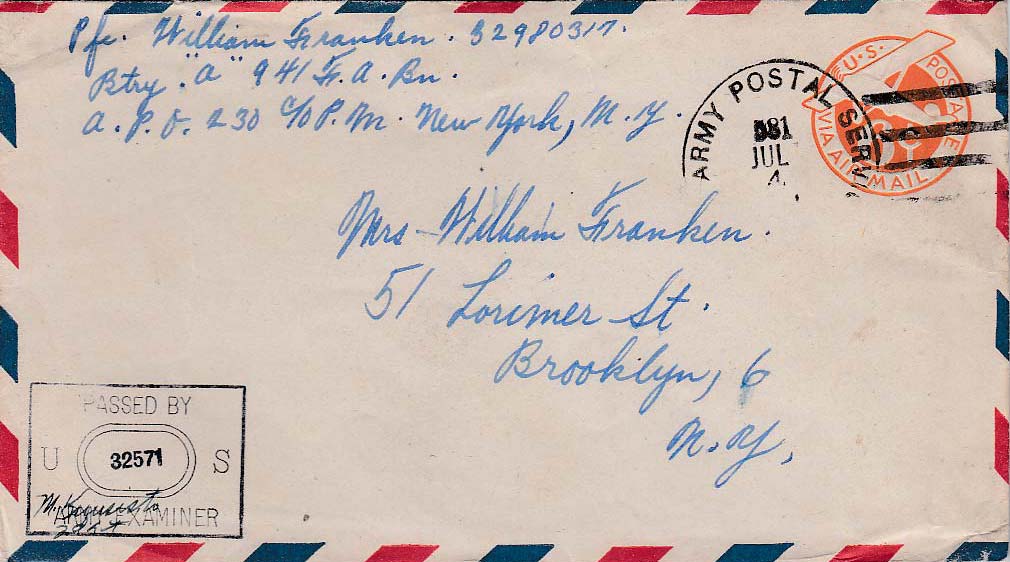 Pfc. William Franken. 32980317.
Btry. "A" 941 F.A. Bn.
A.P.O. 230 c/o P.M. New York, N.Y.
ARMY POSTAL SERVI
JUL
4
U.S. POSTAGE
VIA AIR MAIL
Mrs William Franken.
51 Lorimer St.
Brooklyn, 6
N.Y,
PASSED BY
U 32571 S
ARMY EXAMINER